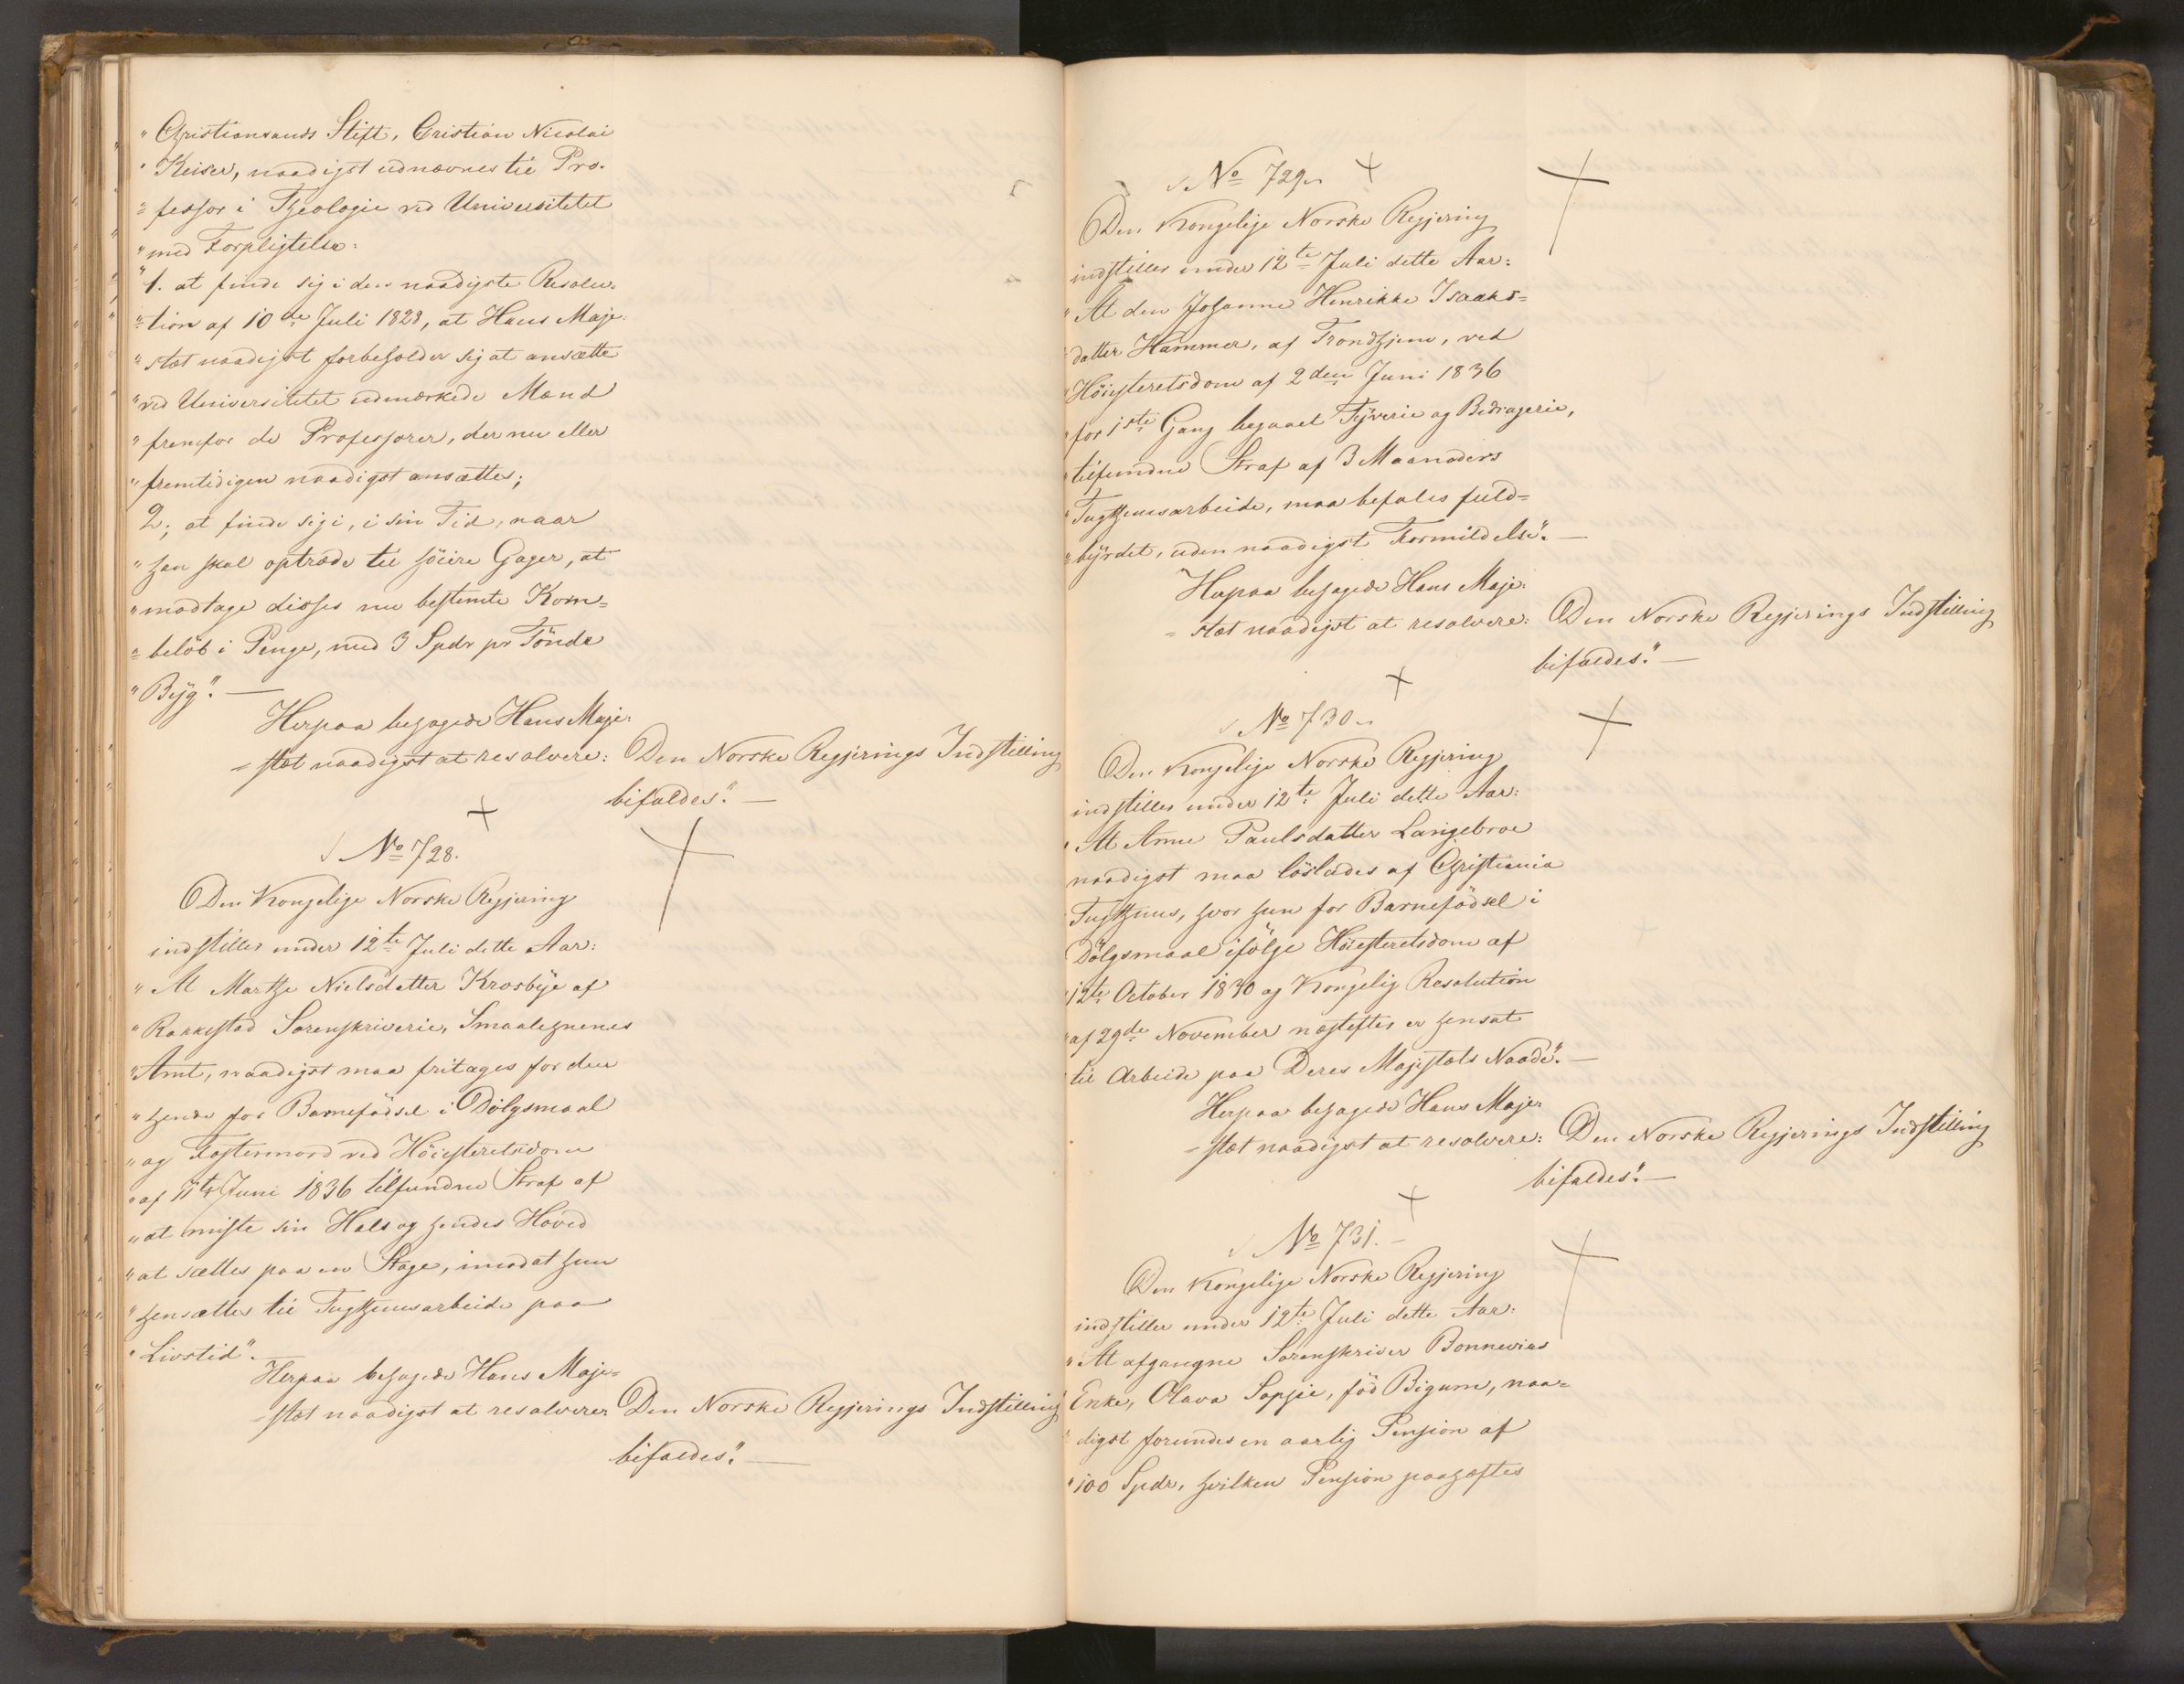 "Christiansands Stift, Cristian Nicolai
"Keiser, naadigst udnævnes til Pro-
"fessor i Theologie ved Universitetet
"med Forpligtelse:
"1. at finde sig i den naadigste Resolu-
"tion af 10de Juli 1828, at Hans Maje-
"stæt naadigst forbeholder sig at ansætte
"ved Universitetet udmærkede Mænd
"fremfor de Professorer, der nu eller
"fremtidigen naadigst ansættes;
2, at finde sig i, i sin Tid, naar
"han skal optræde til höiere Gager, at
"modtage disses nu bestemte Korn-
"belöb i Penge, med 3 Spdr pr Tönde
"Byg". —
Herpaa behagede Hans Maje-
-stæt naadigst at resolvere: Den Norske Regjerings Indstilling
bifaldes". —
No 728.
Den Kongelige Norske Regjering
indstiller under 12te Juli dette Aar:
"At Marthe Nielsdatter Krosbye af
"Rakkestad Sorenskriverie, Smaalehnenes
"Amt, naadigst maa fritages for den
"hende for Barnefödsel i Dölgsmaal
"og Fostermord ved Höiesteretsdom
"af 11te Juni 1836 tilfundne Straf af
"at miste sin Hals og hendes Hoved
"at sættes paa en Stage, imod at hun
"hensættes til Tugthuusarbeide paa
"Livstid".
Herpaa behagede Hans Maje-
-stæt naadigst at resolvere: Den Norske Regjerings Indstilling
bifaldes". —
No 729.
Den Kongelige Norske Regjering
indstiller under 12te Juli dette Aar:
"At den Johanne Henrikke Isaaks-
"datter Hammer, af Trondhjem, ved
"Höiesteretsdom af 2den Juni 1836
"for 1ste Gang begaaet Tyverie og Bedragerie,
"tilfundne Straf af 3 Maaneders
"Tugthuusarbeide, maa befales fuld-
"byrdet, uden naadigst Formildelse". —
Herpaa behagede Hans Maje-
-stæt naadigst at resolvere: Den Norske Regjerings Indstilling
bifaldes". —
No 730.
Den Kongelige Norske Regjering
indstiller under 12te Juli dette Aar:
"At Anne Paulsdatter Langebroe
naadigst maa löslades af Christiania
Tugthuus, hvor hun for Barnefödsel i
Dölgsmaal ifölge Höiesteretsdom af
"12te October 1830 og Kongelig Resolution
"af 29de November næstefter er hensat
til Arbeide paa Deres Majestæts Naade". —
Herpaa behagede Hans Maje-
-stæt naadigst at resolvere: Den Norske Regjerings Indstilling
bifaldes". —
No 731.
Den Kongelige Norske Regjering
indstiller under 12te Juli dette Aar:
"At afgangne Sorenskriver Bonnevies
Enke, Olava Sophie, föd Bigum, naa-
"digst forundes en aarlig Pension af
"100 Spdr, hvilken Pension paahæftes